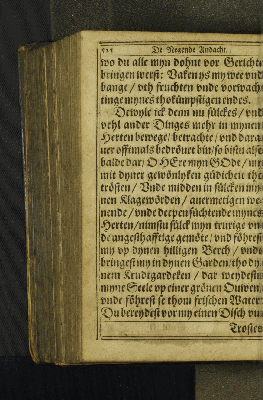 De Negende Andacht.
wo du alle myn dohnt vor Gerichte
bringen werst: Vaken ys my wee vnd
bange / vth fruchten vnde vorwach-
tinge mynes thokümpstigen endes.
Dewyle ick denn nu sülckes / vnd
vehl ander Dinges mehr in mynem
Herten bewege / betrachte / vnd daraa
uer offtmals bedröuet bin / so bistu alse
balde dar / O HEre myn GOdt / my
mit dyner gewönlyken güdicheit tho
trösten / Vnde midden in sülcken my-
nen Klagewörden / auermetigen we-
nende / vnde deepensüchtende mynes
Herten / nimstu sülck myn trurige vn-
de angesthafftige gemöte / vnd föhrest
my vp dynen hilligen Berch / vnde
bringest my in dynen Garden / tho dy-
nem Krudtgardeken / dar weydestu
myne Seele vp einer grönen Ouwen
vnde föhrest se thom frischen Water.
Du bereydest vor my einen Disch vu
Trostes